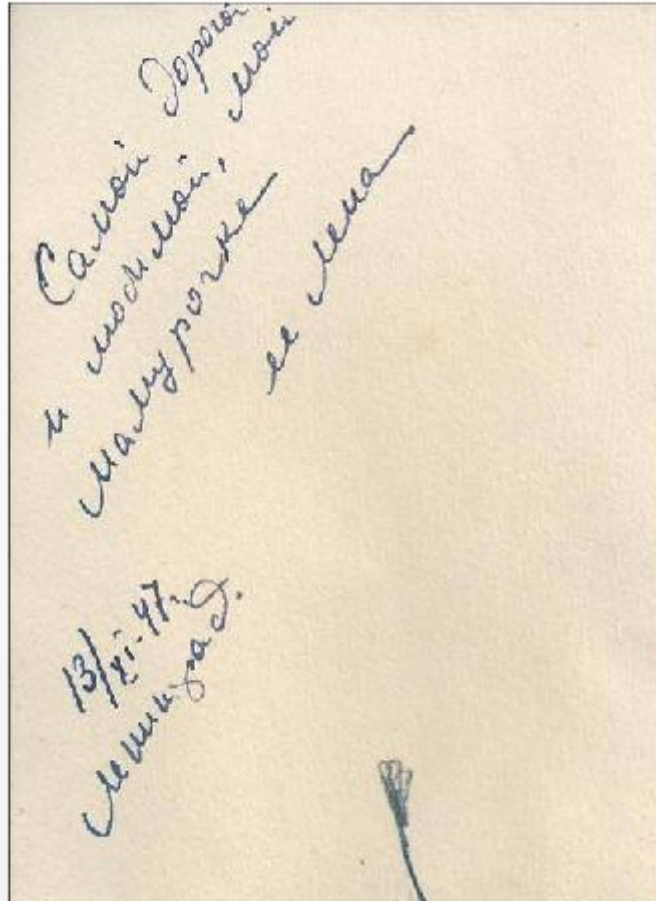 Самой дорогой
и любимой, моей
мамурочке
ее Лена
13/XI-47.
Ленинград.